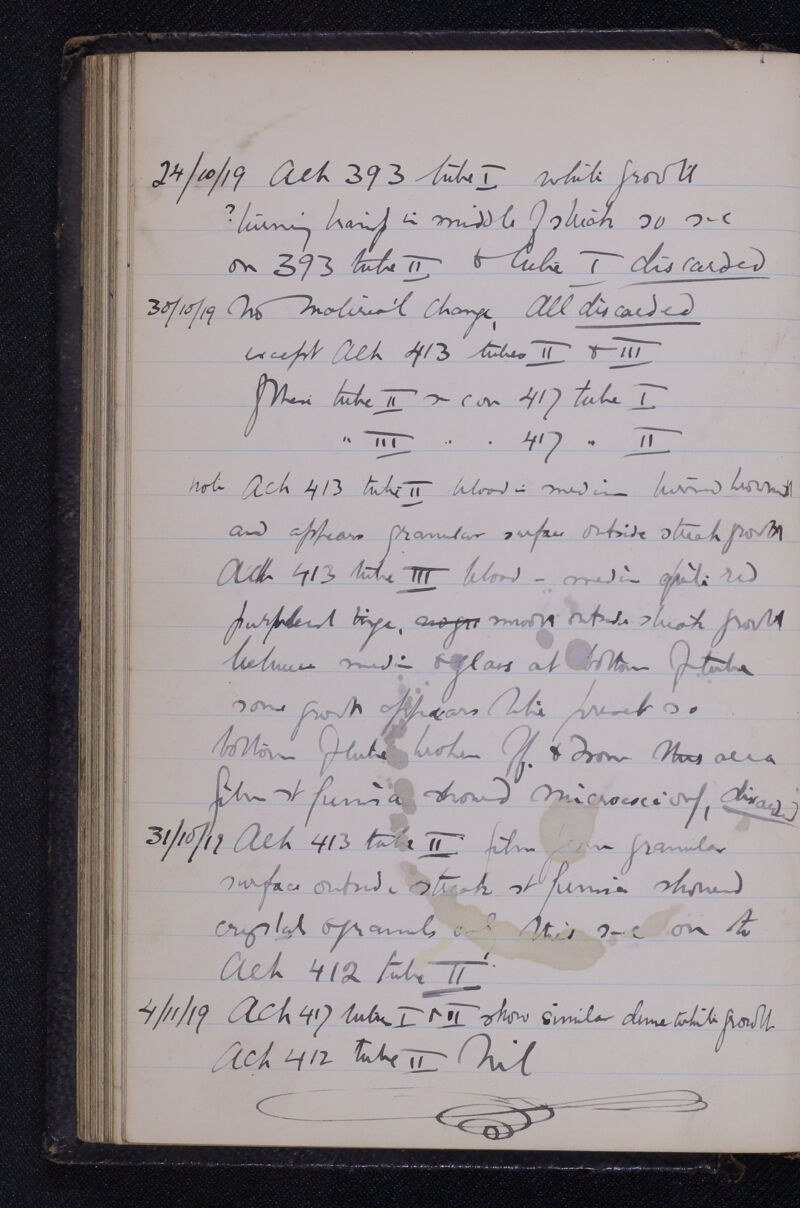 24/10/19 Ach 393 tube I white growth
? turning transp in middle of streak so s-c
on 393 tube II & tube I discarded
30/10/19 No material change, All discarded
except Ach 413 tubes II & III
Of these tube II s-c on 417 tube I
" III " " 417 " II
note Ach 413 tube II blood - medium turned brownish
and appears granular surface outside streak growth
Ach 413 tube III blood - medium quite red
purplered tinge, smooth outside streak growth
between medium & glass at bottom of tube
some growth appears to be present so
bottom of tube broken off. & from this area
film st fuchsin showed micrococci only, discarded
31/10/19 Ach 413 tube II film from granular
surface outside streak st fuchsin showed
crystals & granules only this s-c on to
Ach 412 tube II
4/11/19 Ach 417 tubes I & II show similar dense white growth
Ach 412 tube II Nil